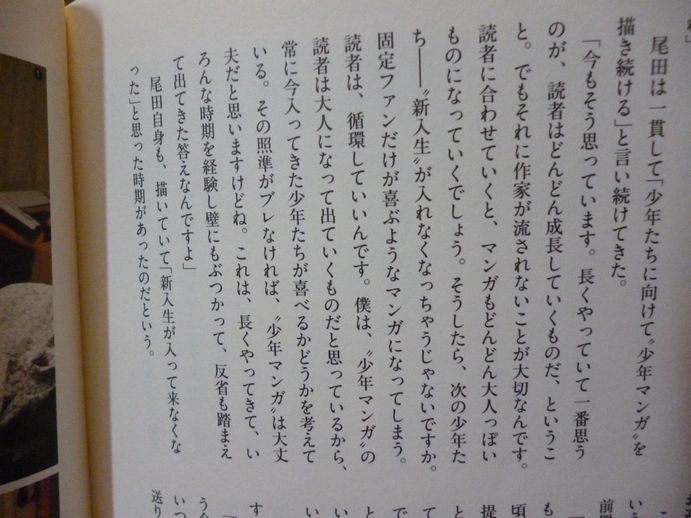 ね」
尾田は一貫して「少年たちに向けて〝少年マンガ〟を
描き続ける」と言い続けてきた。
「今もそう思っています。長くやっていて一番思う
のが、読者はどんどん成長していくものだ、というこ
と。でもそれに作家が流されないことが大切なんです。
読者に合わせていくと、マンガもどんどん大人っぽい
ものになっていくでしょう。そうしたら、次の少年た
ち――〝新入生〟が入れなくなっちゃうじゃないですか。
固定ファンだけが喜ぶようなマンガになってしまう。
読者は、循環していいんです。僕は、〝少年マンガ〟の
読者は大人になって出ていくものだと思っているから、
常に今入ってきた少年たちが喜べるかどうかを考えて
いる。その照準がブレなければ、〝少年マンガ〟は大丈
夫だと思いますけどね。これは、長くやってきて、い
ろんな時期を経験し壁にもぶつかって、反省も踏まえ
て出てきた答えなんですよ」
尾田自身も、描いていて「新入生が入って来なくな
った」と思った時期があったのだという。